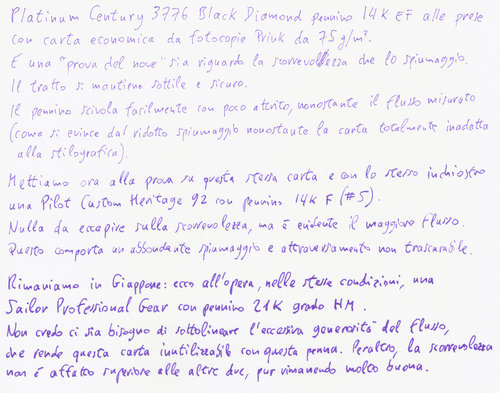 Platinum Century 3776 Black Diamond pennino 14K EF alle prese
con carta economica da fotocopie Prink da 75 g/m².
È una "prova del nove" sia riguardo la scorrevolezza che lo spiumaggio.
Il tratto si mantiene sottile e sicuro.
Il pennino scivola facilmente con poco attrito, nonostante il flusso misurato
(come si evince dal ridotto spiumaggio nonostante la carta totalmente inadatta
alla stilografica).
Mettiamo ora alla prova su questa stessa carta e con lo stesso inchiostro
una Pilot Custom Heritage 92 con pennino 14K F (#5).
Nulla da eccepire sulla scorrevolezza, ma è evidente il maggiore flusso.
Questo comporta un abbondante spiumaggio e attraversamento non trascurabile.
Rimaniamo in Giappone: ecco all'opera, nelle stesse condizioni, una
Sailor Professional Gear con pennino 21K grado HM.
Non credo ci sia bisogno di sottolineare l'eccessiva generosità del flusso,
che rende questa carta inutilizzabile con questa penna. Peraltro, la scorrevolezza
non è affatto superiore alle altre due, pur rimanendo molto buona.